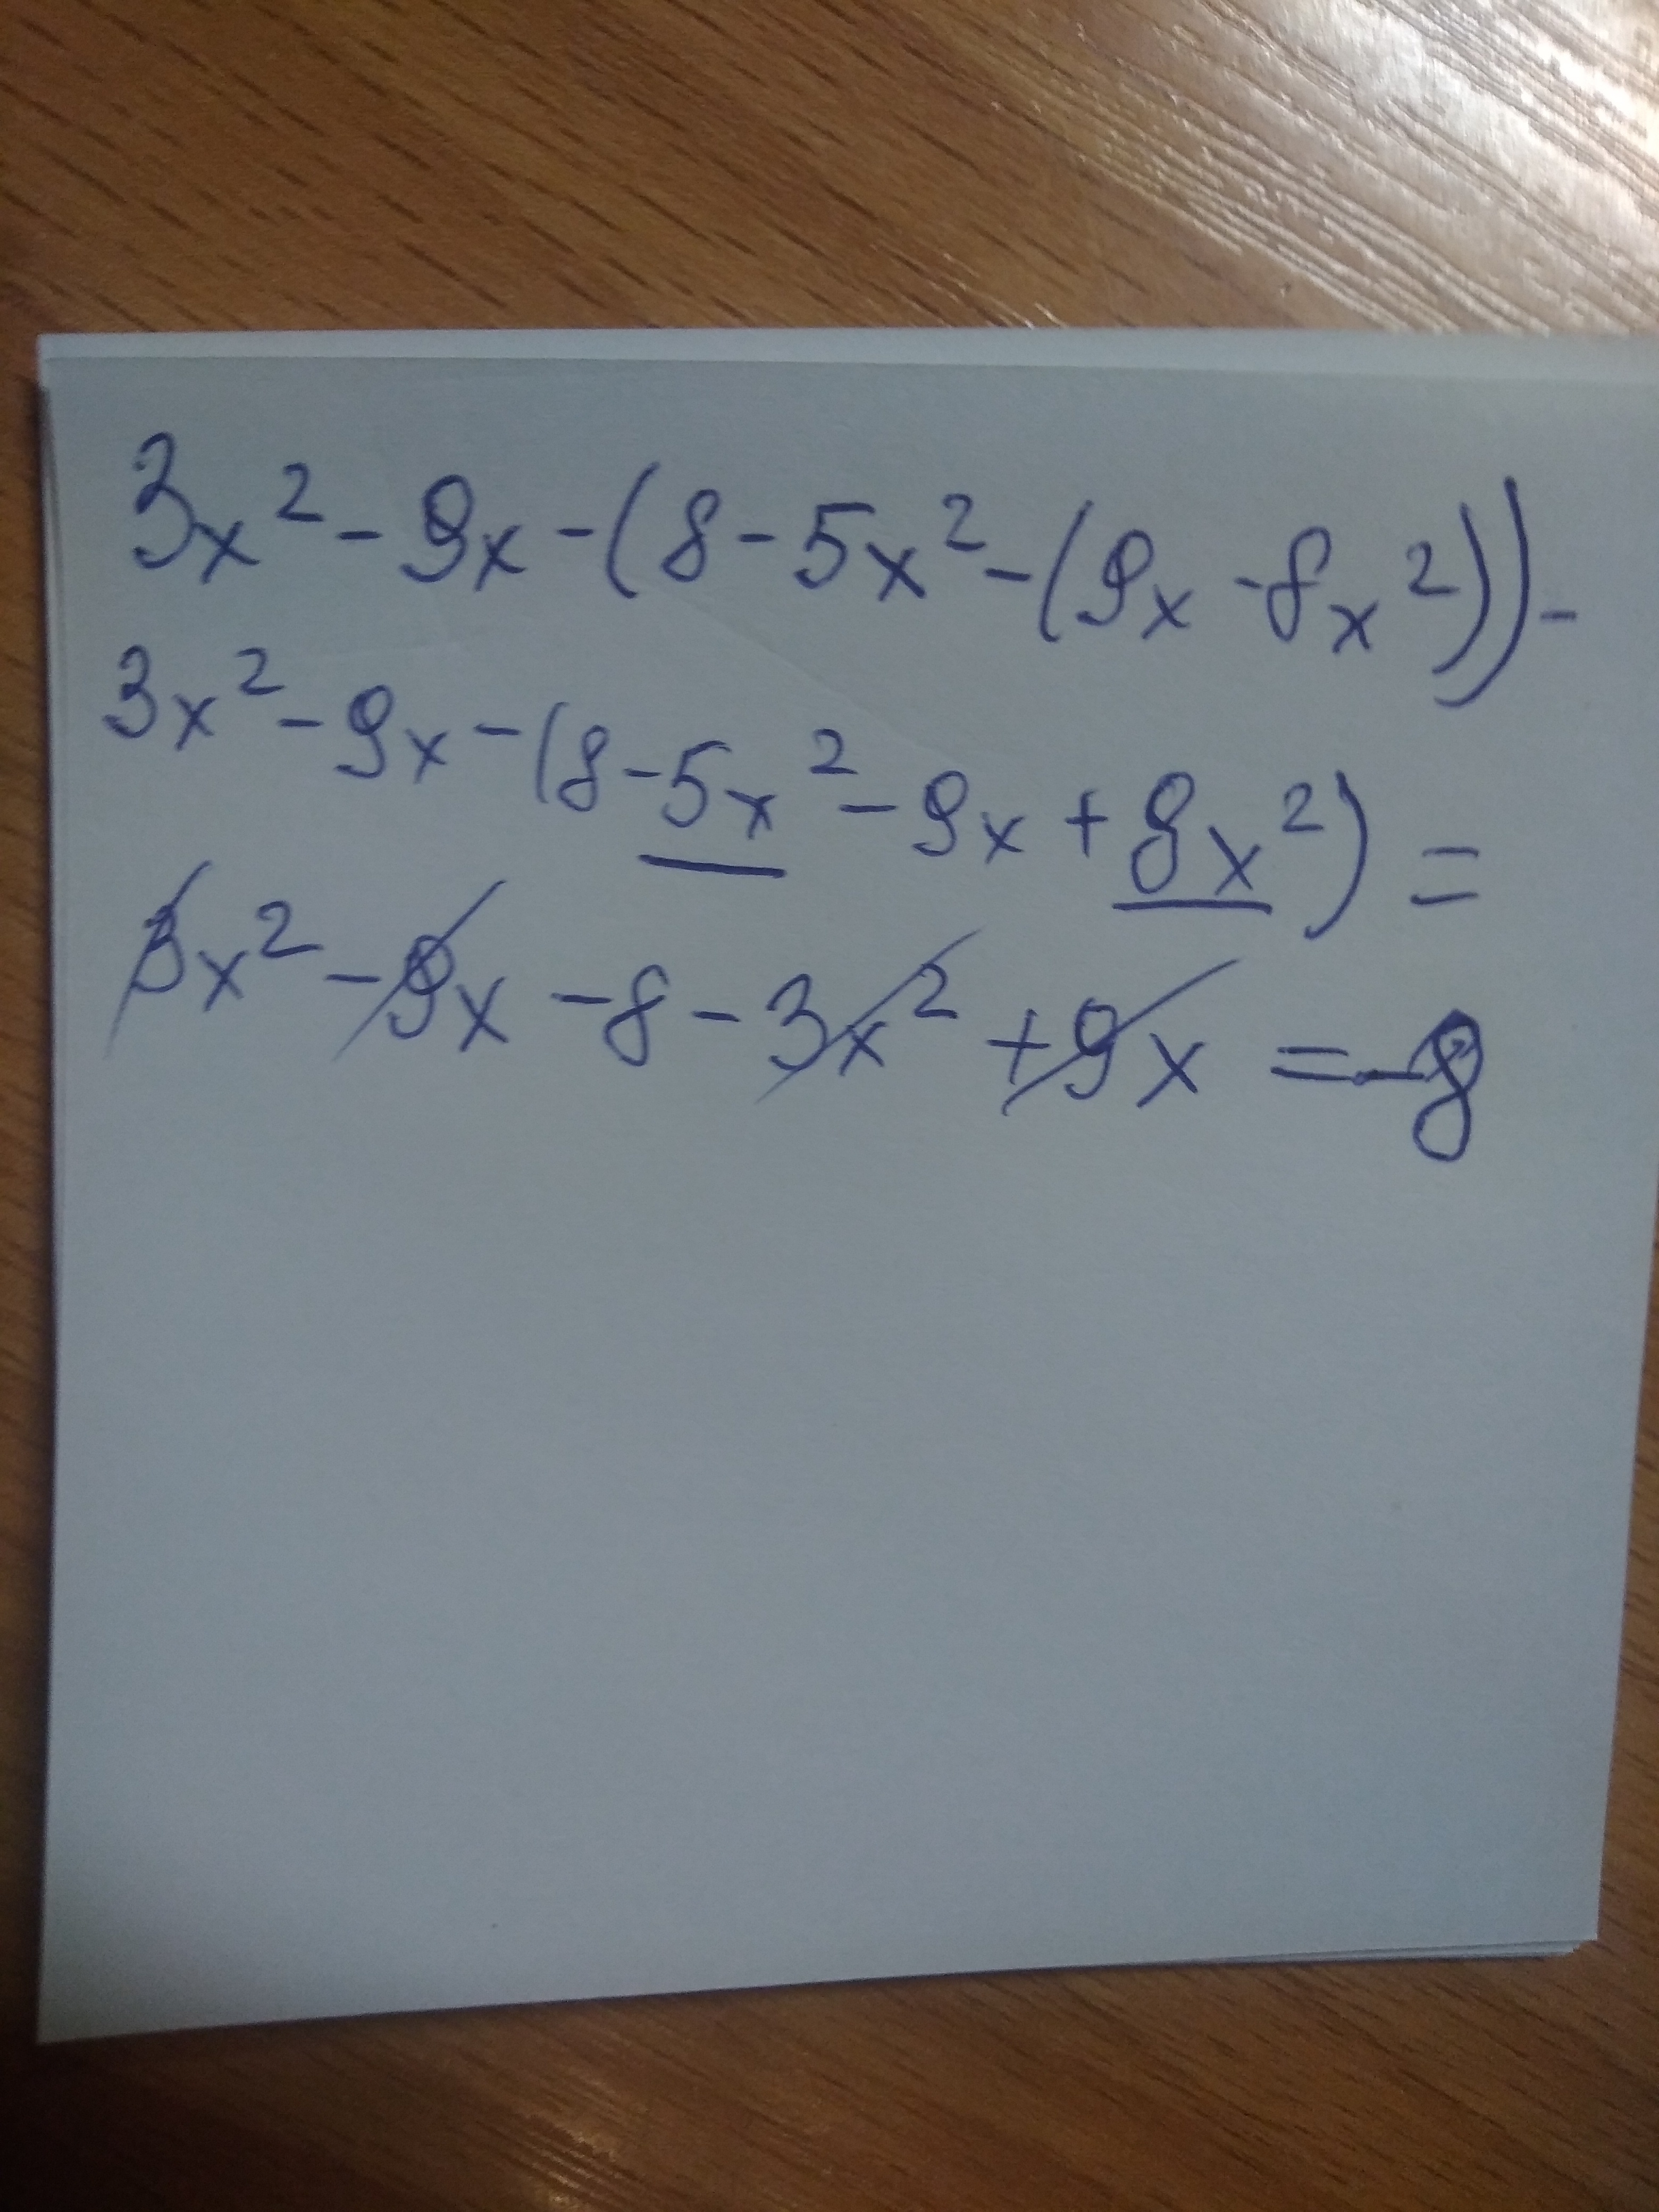 3x² - 9x - (8 - 5x² - (9x - 8x²)) -
3x² - 9x - (8 - 5x² - 9x + 8x²) =
3x² - 9x - 8 - 3x² + 9x = -8